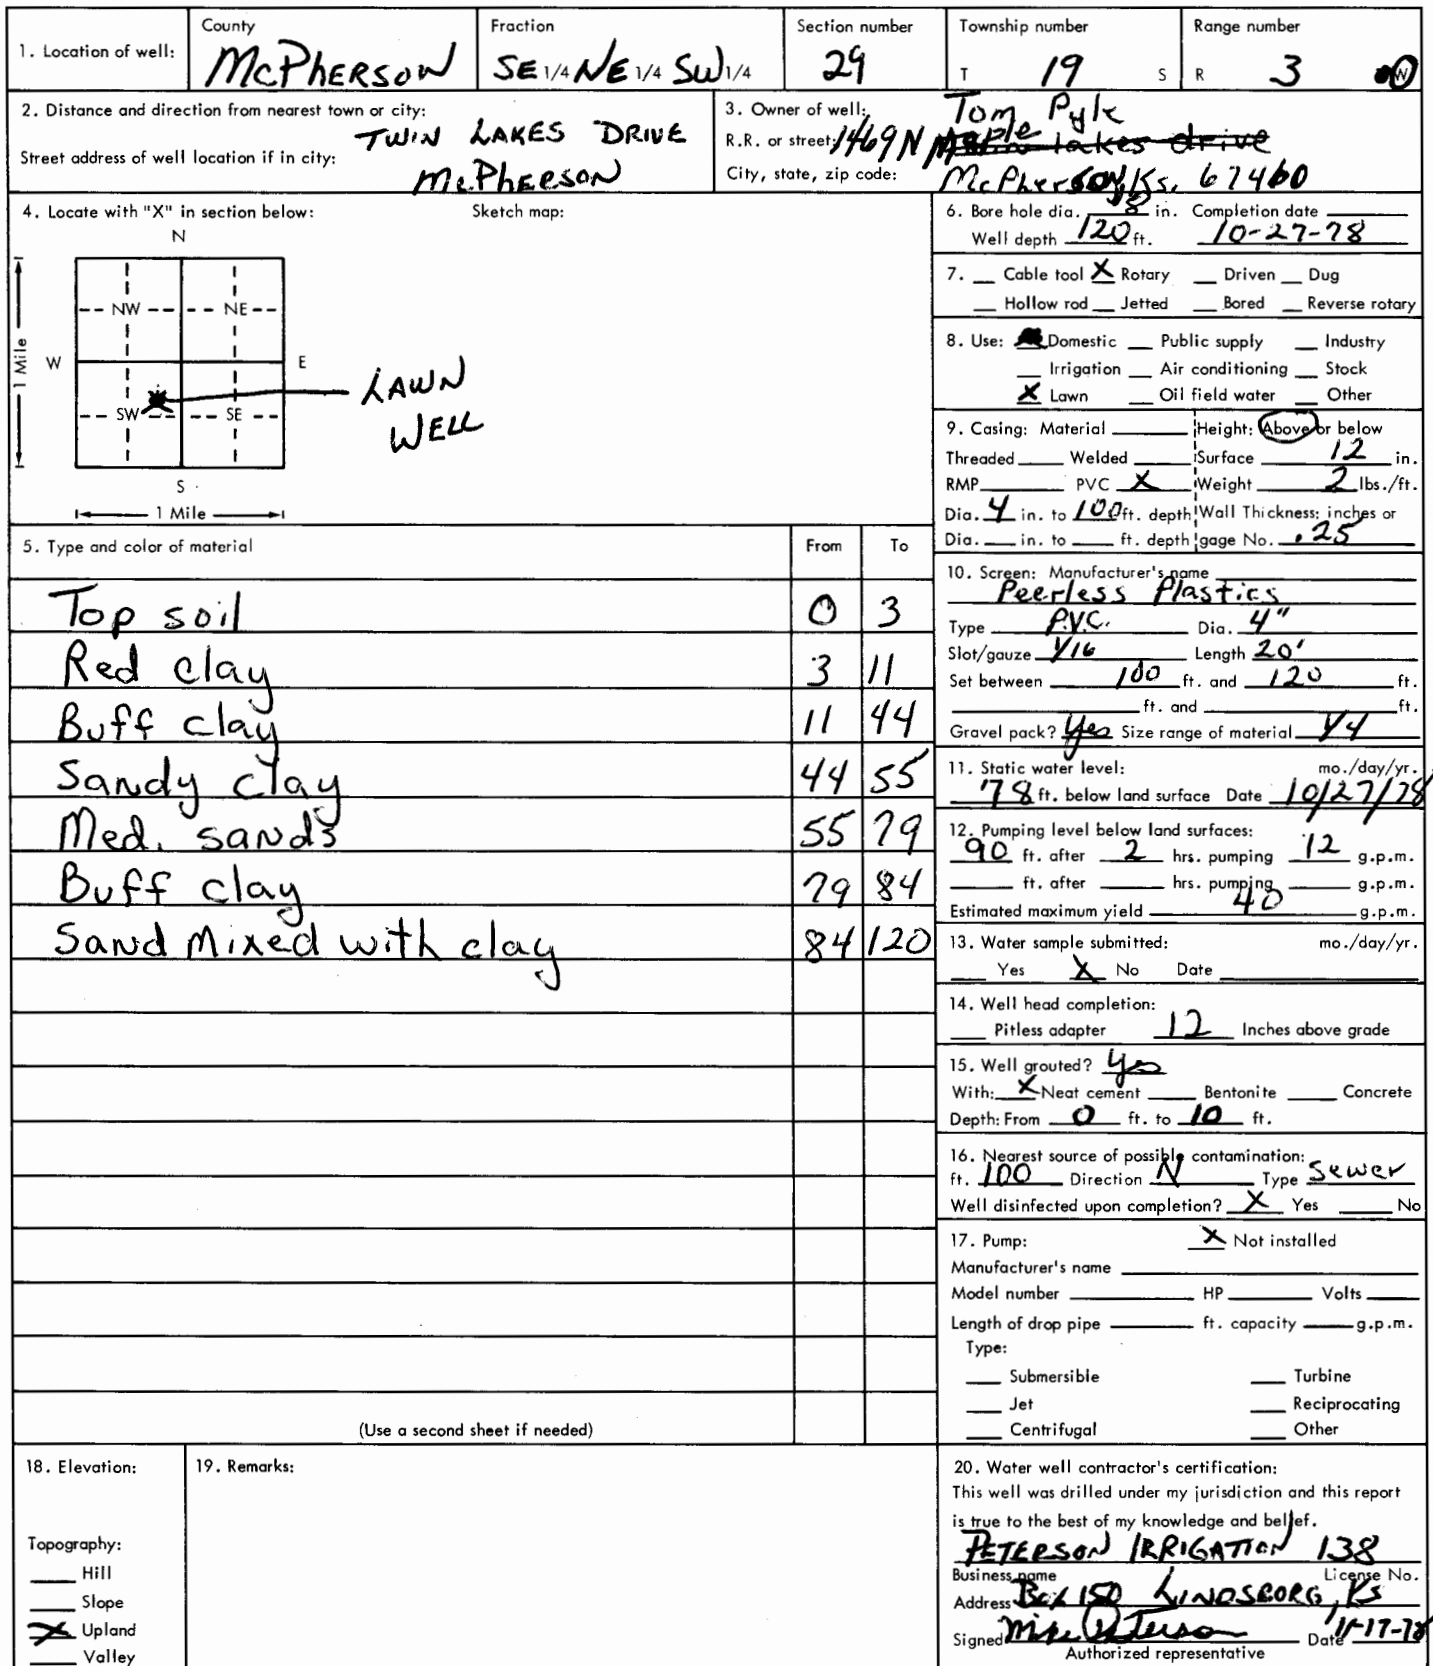 1. Location of well:
County
McPHERSON
Fraction
SE 1/4 NE 1/4 SW 1/4
Section number
29
Township number
T 19 S
Range number
R 3 W
2. Distance and direction from nearest town or city:
TWIN LAKES DRIVE
Street address of well location if in city:
McPherson
3. Owner of well: Tom Pyle
R.R. or street: 1469 N Maple lakes drive
City, state, zip code: McPherson, Ks. 67460
4. Locate with "X" in section below:
Sketch map:
N
NW NE
W E
SW SE
S
1 Mile
1 Mile
LAWN
WELL
5. Type and color of material From To
Top soil 0 3
Red clay 3 11
Buff clay 11 44
Sandy clay 44 55
Med. sands 55 79
Buff clay 79 84
Sand Mixed with clay 84 120
(Use a second sheet if needed)
6. Bore hole dia. 8 in. Completion date
Well depth 120 ft. 10-27-78
7. Cable tool X Rotary Driven Dug
Hollow rod Jetted Bored Reverse rotary
8. Use: Domestic Public supply Industry
Irrigation Air conditioning Stock
X Lawn Oil field water Other
9. Casing: Material Height: Above or below
Threaded Welded Surface 12 in.
RMP PVC X Weight 2 lbs./ft.
Dia. 4 in. to 100 ft. depth Wall Thickness: inches or
Dia. in. to ft. depth gage No. .25
10. Screen: Manufacturer's name
Peerless Plastics
Type P.V.C. Dia. 4"
Slot/gauze 1/16 Length 20'
Set between 100 ft. and 120 ft.
ft. and ft.
Gravel pack? Yes Size range of material 1/4
11. Static water level: mo./day/yr.
78 ft. below land surface Date 10/27/78
12. Pumping level below land surfaces:
90 ft. after 2 hrs. pumping 12 g.p.m.
ft. after hrs. pumping g.p.m.
Estimated maximum yield 40 g.p.m.
13. Water sample submitted: mo./day/yr.
Yes X No Date
14. Well head completion:
Pitless adapter 12 Inches above grade
15. Well grouted? yes
With: X Neat cement Bentonite Concrete
Depth: From 0 ft. to 10 ft.
16. Nearest source of possible contamination:
ft. 100 Direction N Type Sewer
Well disinfected upon completion? X Yes No
17. Pump: X Not installed
Manufacturer's name
Model number HP Volts
Length of drop pipe ft. capacity g.p.m.
Type:
Submersible Turbine
Jet Reciprocating
Centrifugal Other
18. Elevation:
Topography:
Hill
Slope
X Upland
Valley
19. Remarks:
20. Water well contractor's certification:
This well was drilled under my jurisdiction and this report
is true to the best of my knowledge and belief.
PETERSON IRRIGATION 138
Business name License No.
Address Box 150 LINDSBORG, KS
Signed Mike Peterson Date 11-17-78
Authorized representative